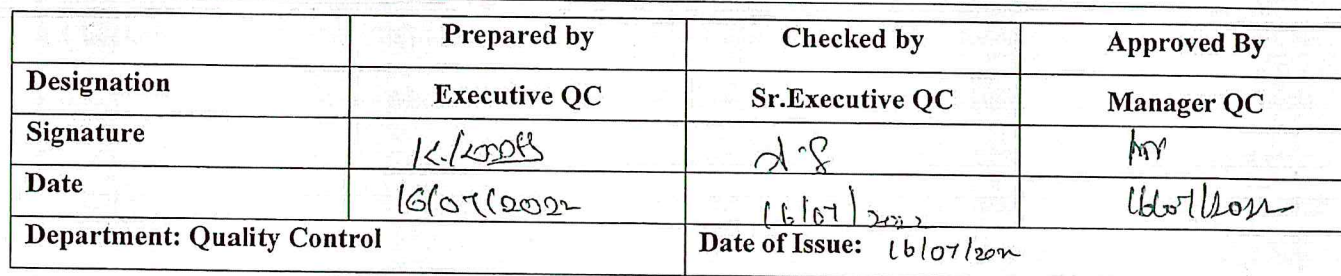 Prepared by Checked by Approved By
Designation Executive QC Sr.Executive QC Manager QC
Signature
Date 16/07/2022 16/07/2022 16/07/2022
Department: Quality Control Date of Issue: 16/07/202